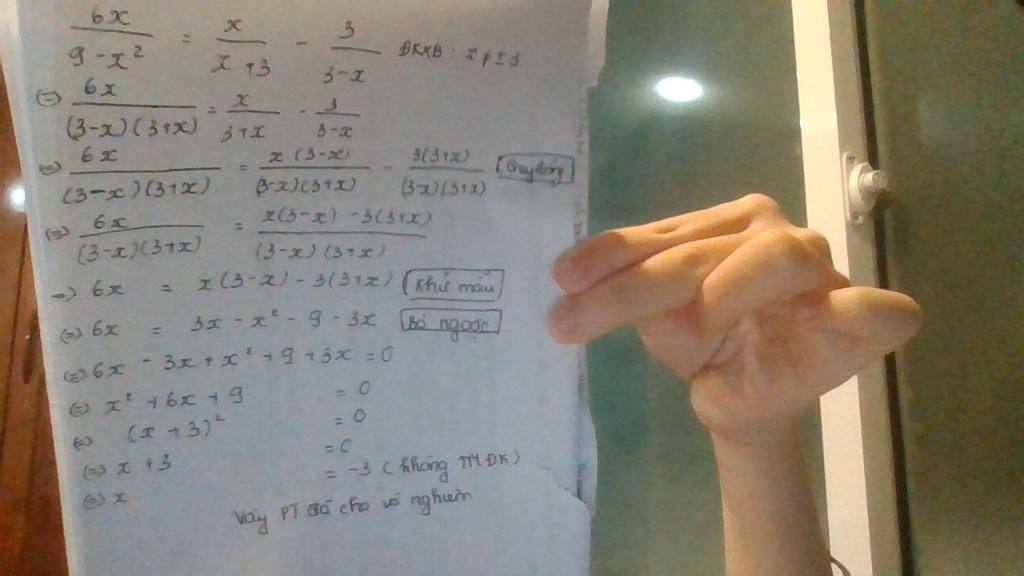 6x / 9 - x² = x / x + 3 - 3 / 3 - x ĐKXĐ : x ≠ ± 3
(=) 6x / (3-x)(3+x) = x / 3+x - 3 / 3-x
(=) 6x / (3-x)(3+x) = x(3-x) / (3-x)(3+x) - 3(3+x) / (3-x)(3+x) Quy đồng
(=) 6x / (3-x)(3+x) = x(3-x) - 3(3+x) / (3-x)(3+x)
=> 6x = x(3-x) - 3(3+x) Khử mẫu
(=) 6x = 3x - x² - 9 - 3x Bỏ ngoặc
(=) 6x - 3x + x² + 9 + 3x = 0
(=) x² + 6x + 9 = 0
(=) (x + 3)² = 0
(=) x + 3 = 0
(=) x = -3 (không TMĐK)
Vậy PT đã cho vô nghiệm